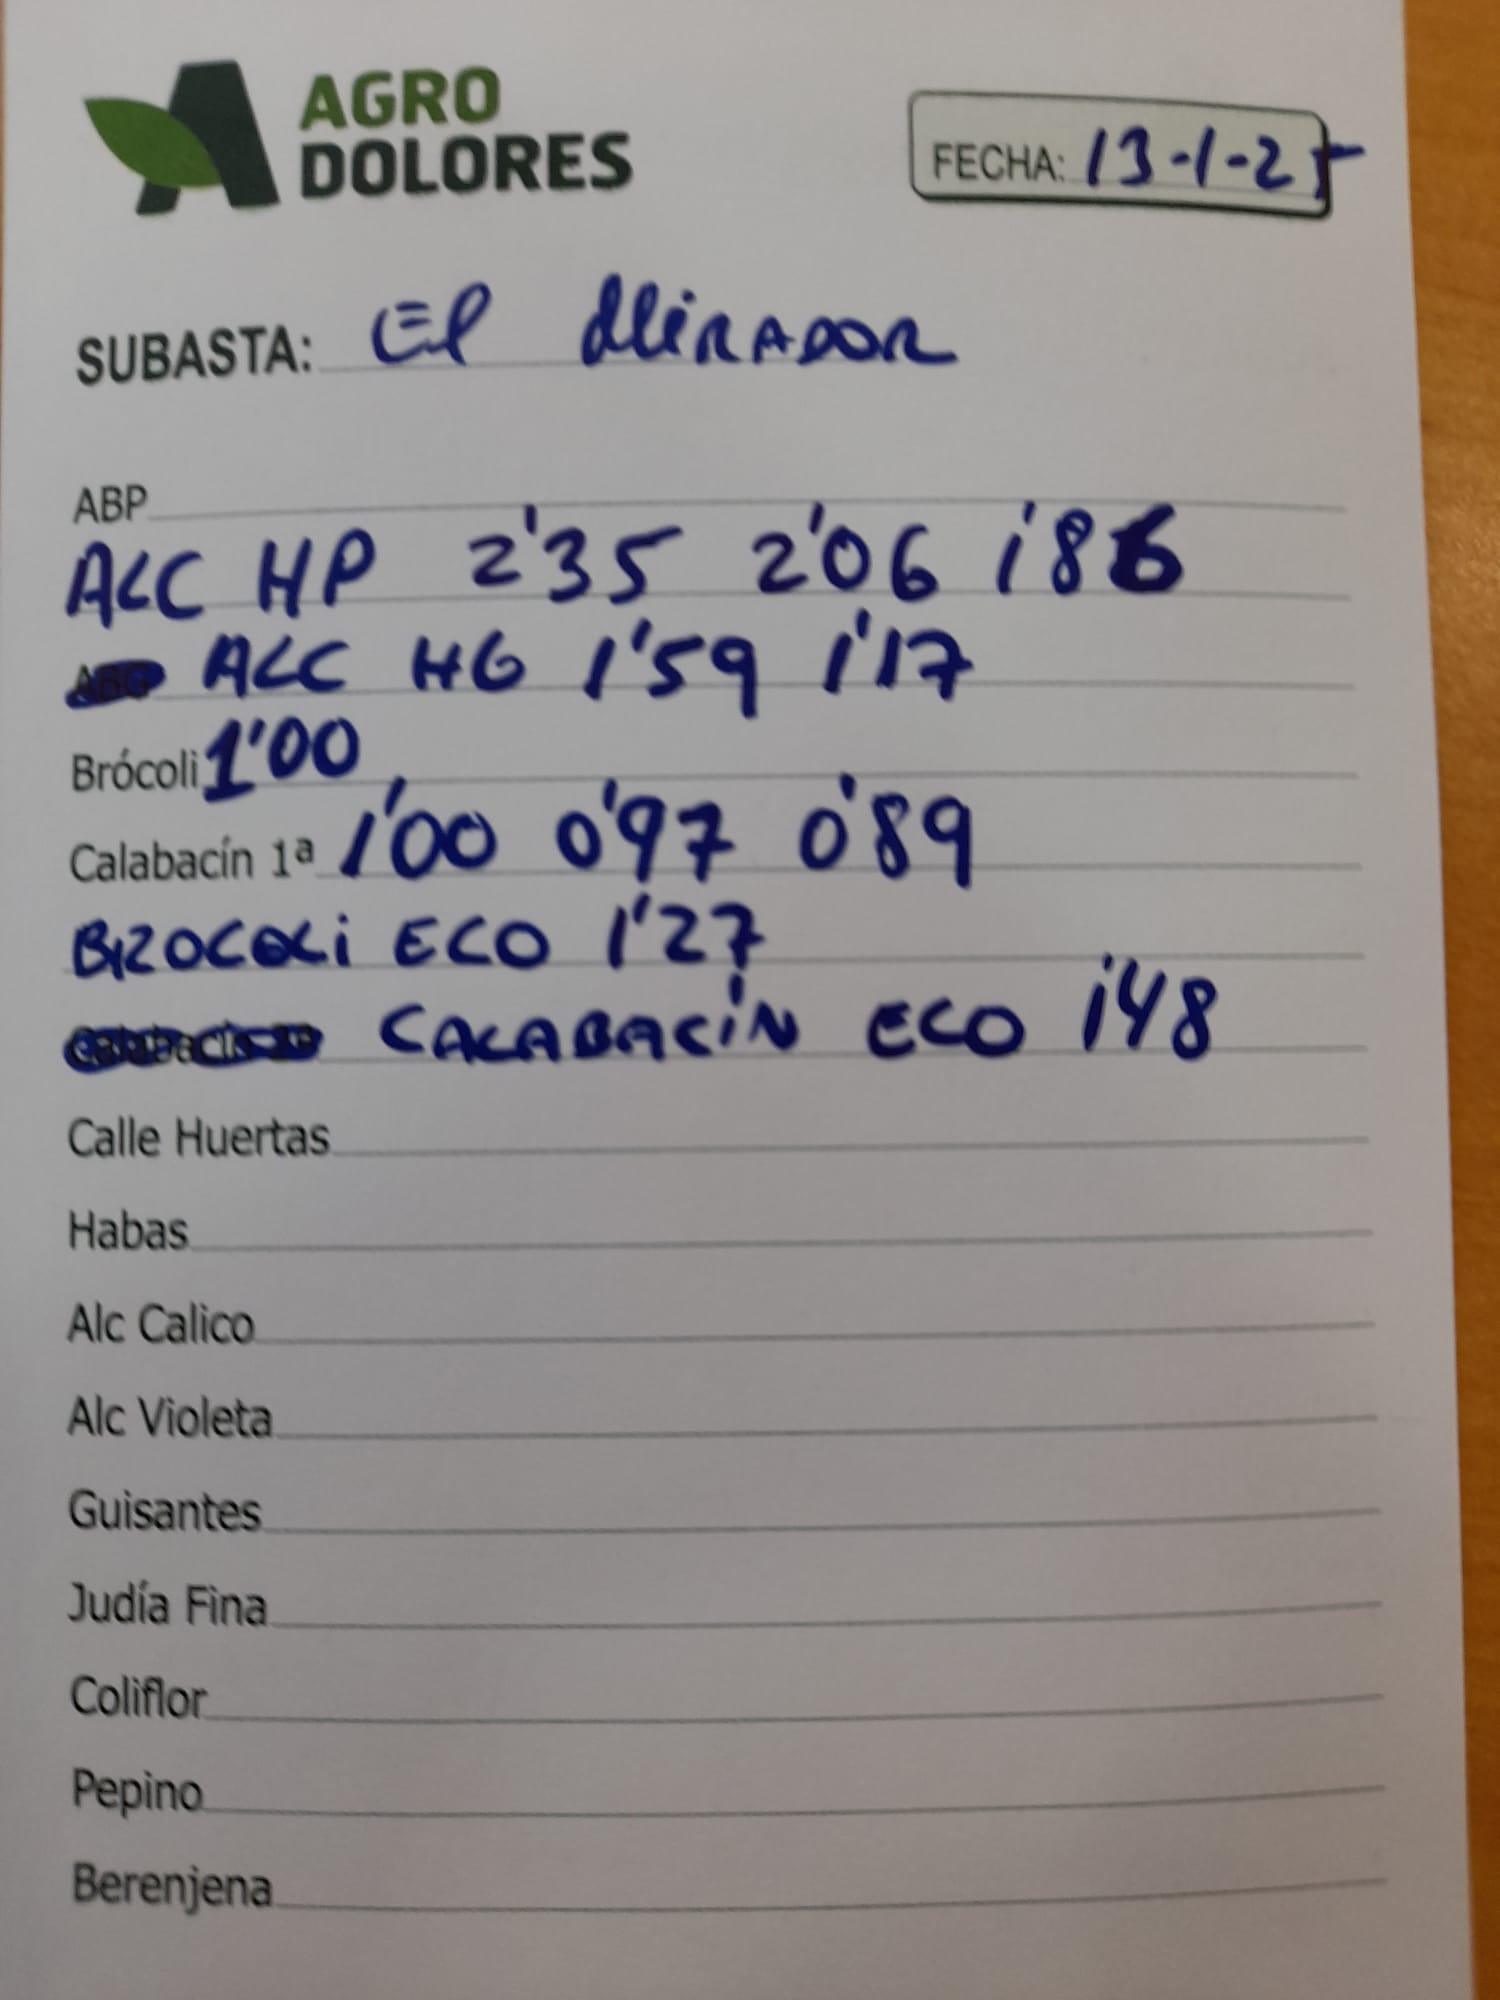 AGRO
DOLORES
FECHA: 13-1-25
SUBASTA: El MiRADOR
ABP
ALC HP 2'35 2'06 1'86
ALC HG 1'59 1'17
Brócoli 1'00
Calabacín 1ª 1'00 0'97 0'89
BROCOLi ECO 1'27
CALABACíN ECO 1'48
Calle Huertas
Habas
Alc Calico
Alc Violeta
Guisantes
Judía Fina
Coliflor
Pepino
Berenjena